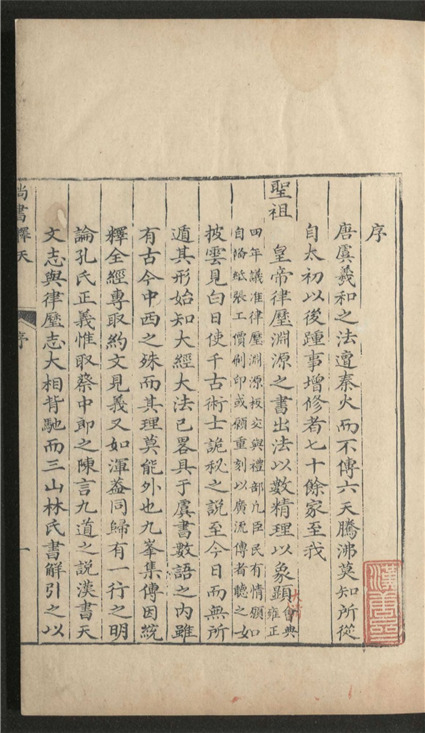 序
唐虞羲和之法遭秦火而不傳六天騰沸莫知所從
自太初以後踵事增修者七十餘家至我
聖祖　皇帝律歷淵源之書出法以數精理以象顯 會典雍正
四年議准律歷淵源板交與禮部凡臣民有情願
自備紙張工價刷印或願重刻以廣流傳者聽之
披雲見白日使千古術士詭秘之說至今日而無所
遁其形始知大經大法已畧具于虞書數語之內雖
有古今中西之殊而其理莫能外也九峯集傳因統
釋全經專取約文見義又如渾葢同歸有一行之明
論孔氏正義惟取蔡中郎之陳言九道之說漢書天
文志與律歷志大相背馳而三山林氏書解引之以
尚書釋天
序
一